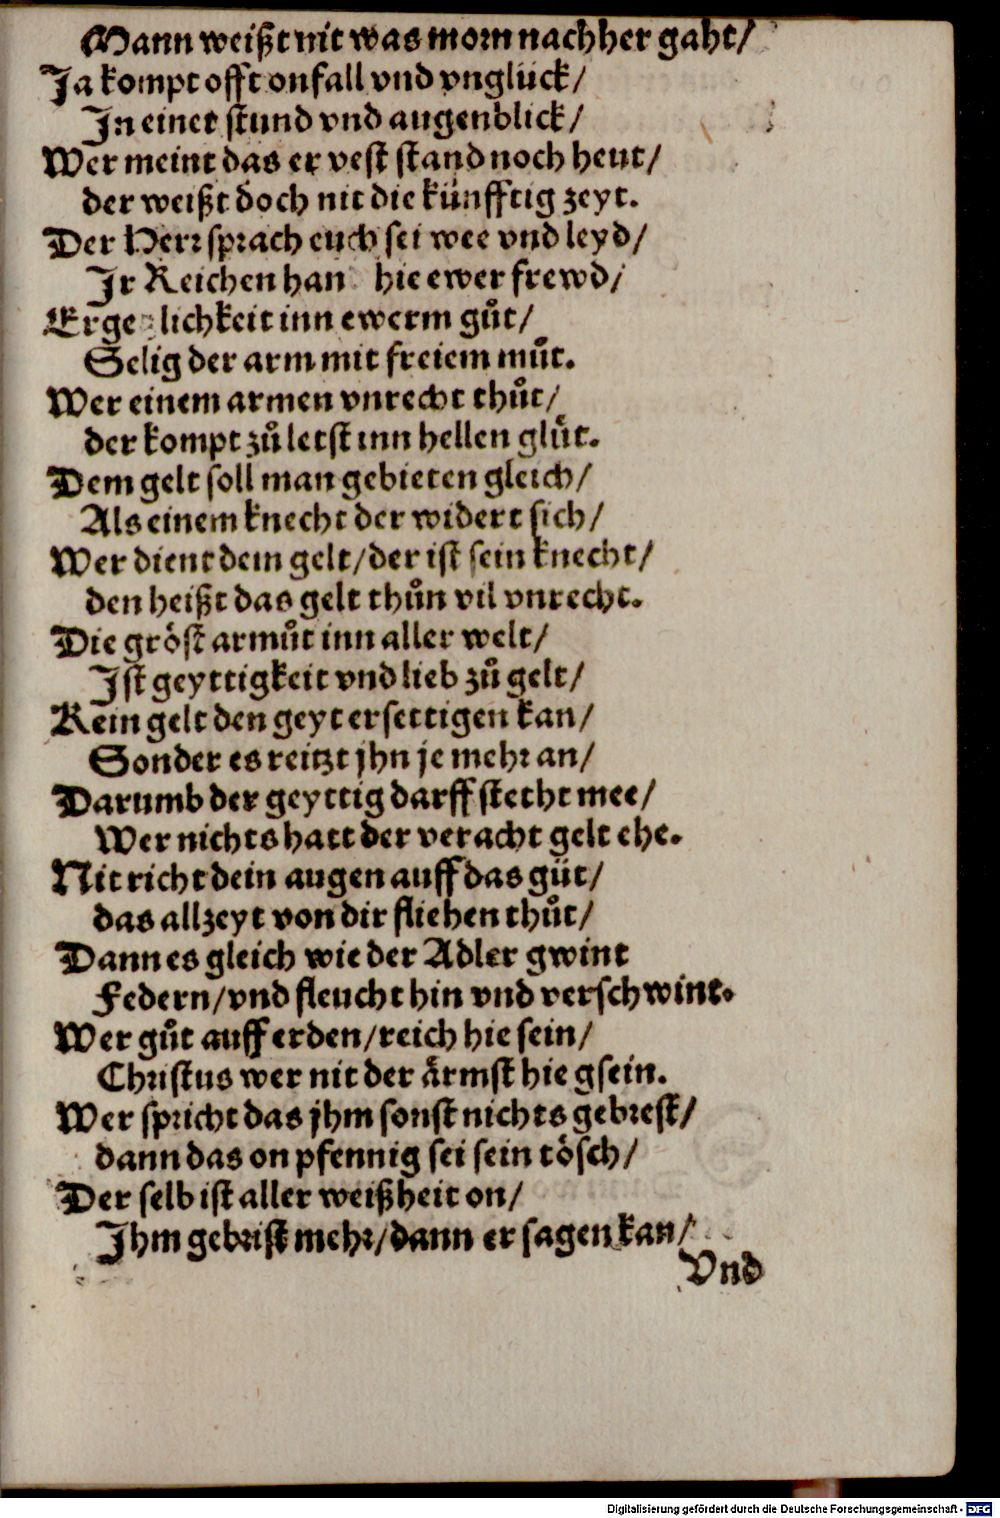 Mann weißt nit was morn nachher gaht/
Ja kompt offt onfall vnd vnglück/
In einer stund vnd augenblick/
Wer meint das er vest stand noch heut/
der weißt doch nit die künfftig zeyt.
Der Herr sprach euch sei wee vnd leyd/
Ir Reichen han hie ewer frewd/
Ergetzlichkeit inn ewerm gůt/
Selig der arm mit freiem můt.
Wer einem armen vnrecht thůt/
der kompt zů letst inn hellen glůt.
Dem gelt soll man gebieten gleich/
Als einem knecht der widert sich/
Wer dient dem gelt/der ist sein knecht/
den heißt das gelt thůn vil vnrecht.
Die gröst armůt inn aller welt/
Ist geyttigkeit vnd lieb zů gelt/
Kein gelt den geyt ersettigen kan/
Sonder es reitzt jhn je mehr an/
Darumb der geyttig darff stetht mee/
Wer nichts hatt der veracht gelt ehe.
Nit richt dein augen auff das gůt/
das allzeyt von dir fliehen thůt/
Dann es gleich wie der Adler gwint
Federn/vnd fleucht hin vnd verschwint.
Wer gůt auff erden/reich hie sein/
Christus wer nit der ärmst hie gsein.
Wer spricht das jhm sonst nichts gebrest/
dann das on pfennig sei sein tösch/
Der selb ist aller weißheit on/
Ihm gebrist mehr/dann er sagen kan/
Vnd
Digitalisierung gefördert durch die Deutsche Forschungsgemeinschaft - DFG